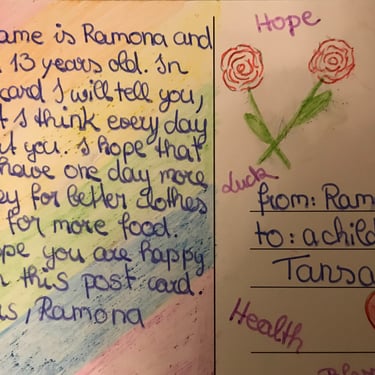 ame is Ramona and
13 years old. In
card I will tell you,
t I think every day
ut you. I hope that
have one day more
ey for better clothes
for more food.
ope you are happy
h this post card.
s, Ramona
Hope
Luck
from: Ram
to: a child
Tansa
Health